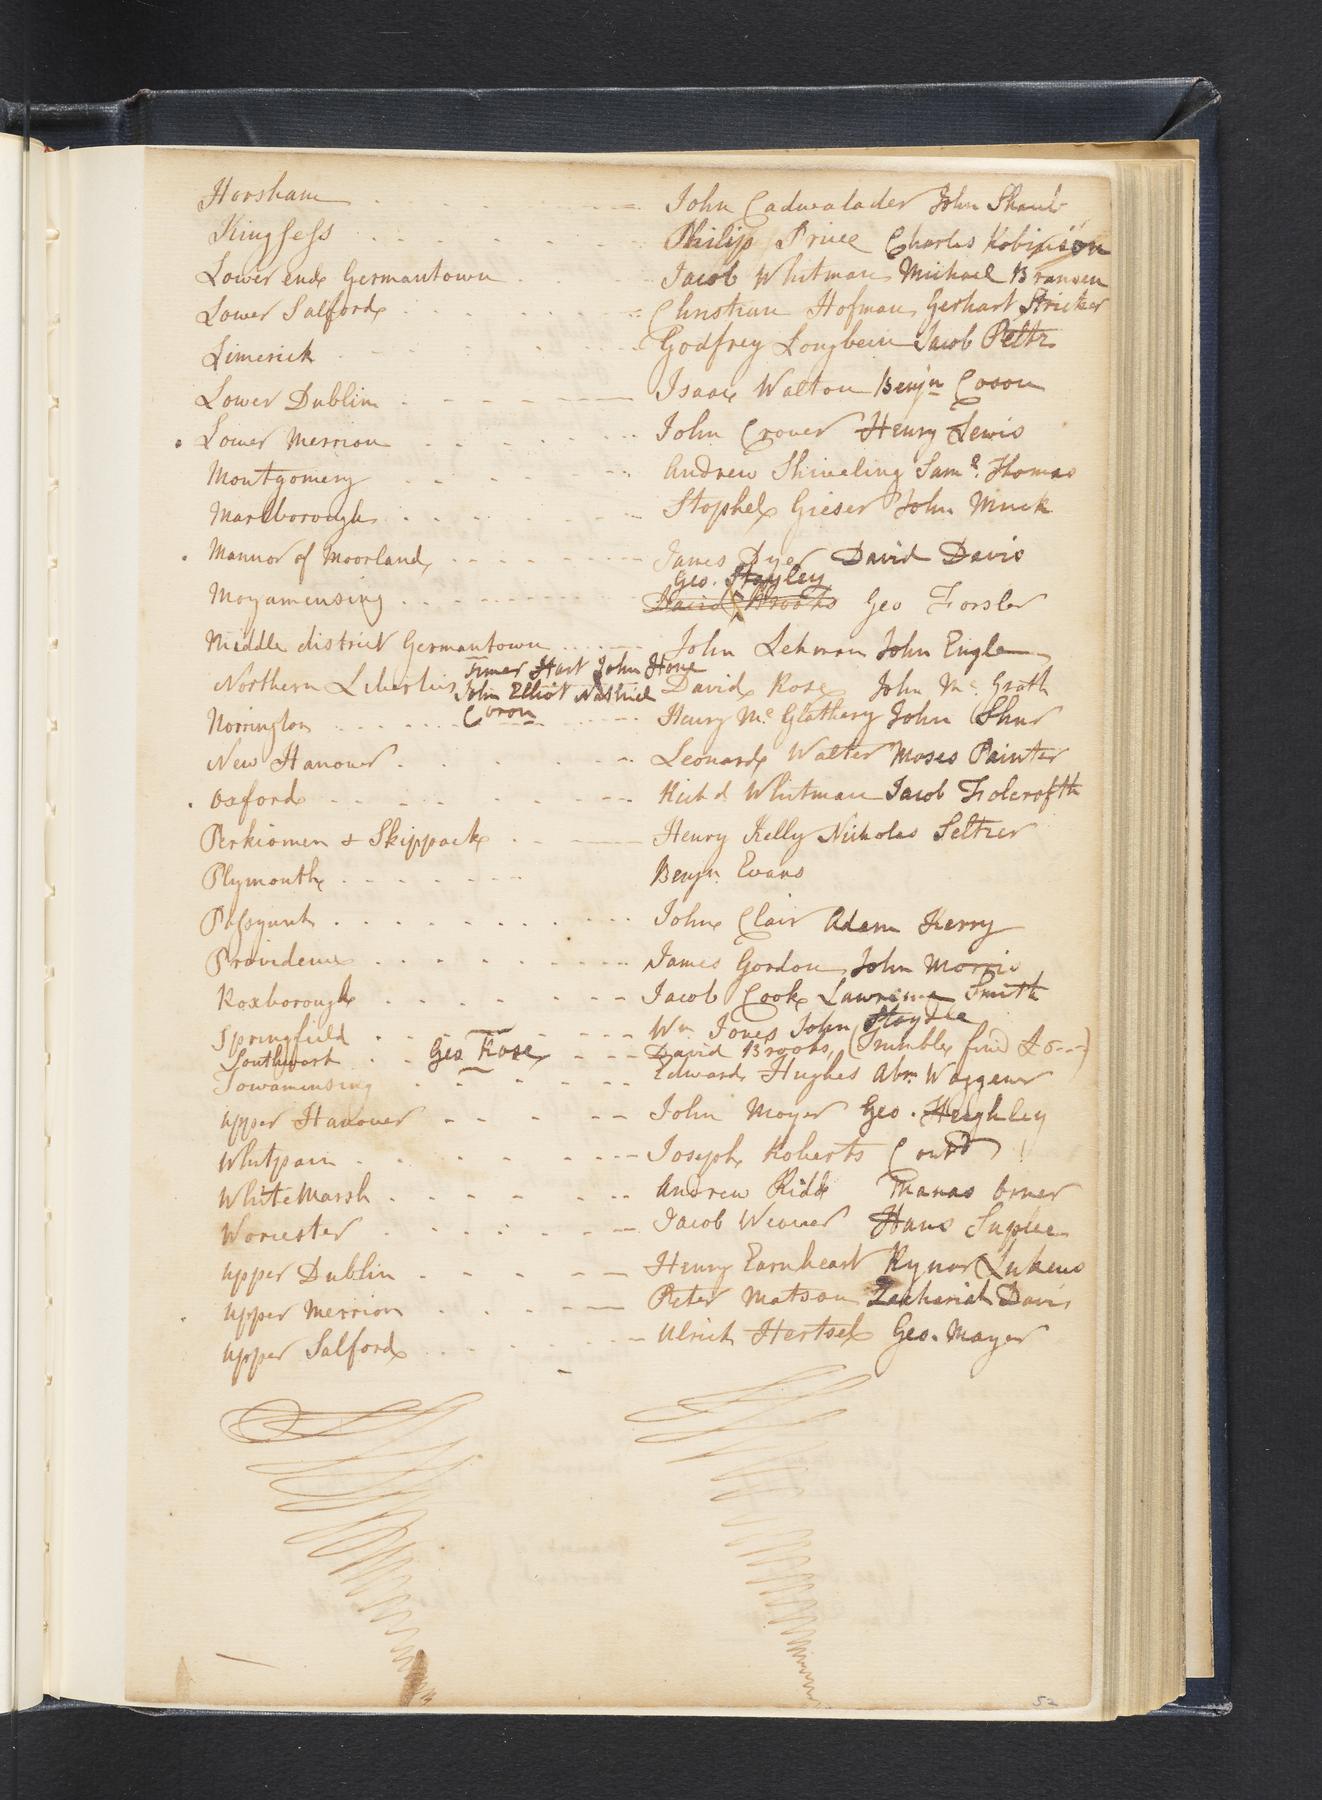 Horsham John Cadwalader John Shaub
Kingsess Philip Price Charles Robinson
Lower end Germantown Jacob Whitman Michael Bransen
Lower Salford Christian Hofman Gerhart Stricker
Limerick Godfrey Longbein Jacob Peltz
Lower Dublin Isaac Walton Benjn Coson
Lower Merrion John Crover Henry Lewis
Montgomery Andrew Shiveling Saml. Thomas
Marlborough Stophel Gieser John Muck
Mannor of Moorland James Dyer David Davis
Geo. Stayley
Moyamensing David Brooks Geo Forsler
Middle district Germantown John Lehman John Engle
Hart John Hone
Northern Liberties John Elliot David Rose John Mc. Grath
Coron
Norrington Henry Mc. Glathery John Shur
New Hanover Leonard Walter Moses Painter
Oxford Richd Whitman Jacob Holcrofth
Perkiomen & Skippack Henry Kelly Nicholas Seltzer
Plymouth Benjn. Evans
Passyunk John Clair Adam Kerry
Providence James Gordon John Morris
Roxborough Jacob Cook Lawrence Smith
Springfield Wm Jones John Staydle
Southwark Geo Rose David Brooks, (Trumble fined £6---)
Towamensing Edward Hughes Abm. Waggener
Upper Hanover John Moyer Geo. Heighley
Whitpain Joseph Roberts Contd
White Marsh Andrew Ridd Thamas Orner
Worcester Jacob Weaver Hans Suplee
Upper Dublin Henry Earnheart Rynor Lukens
Upper Merrion Peter Matson Zachariah Davis
Upper Salford Ulrich Hertsel Geo. Mayer
52